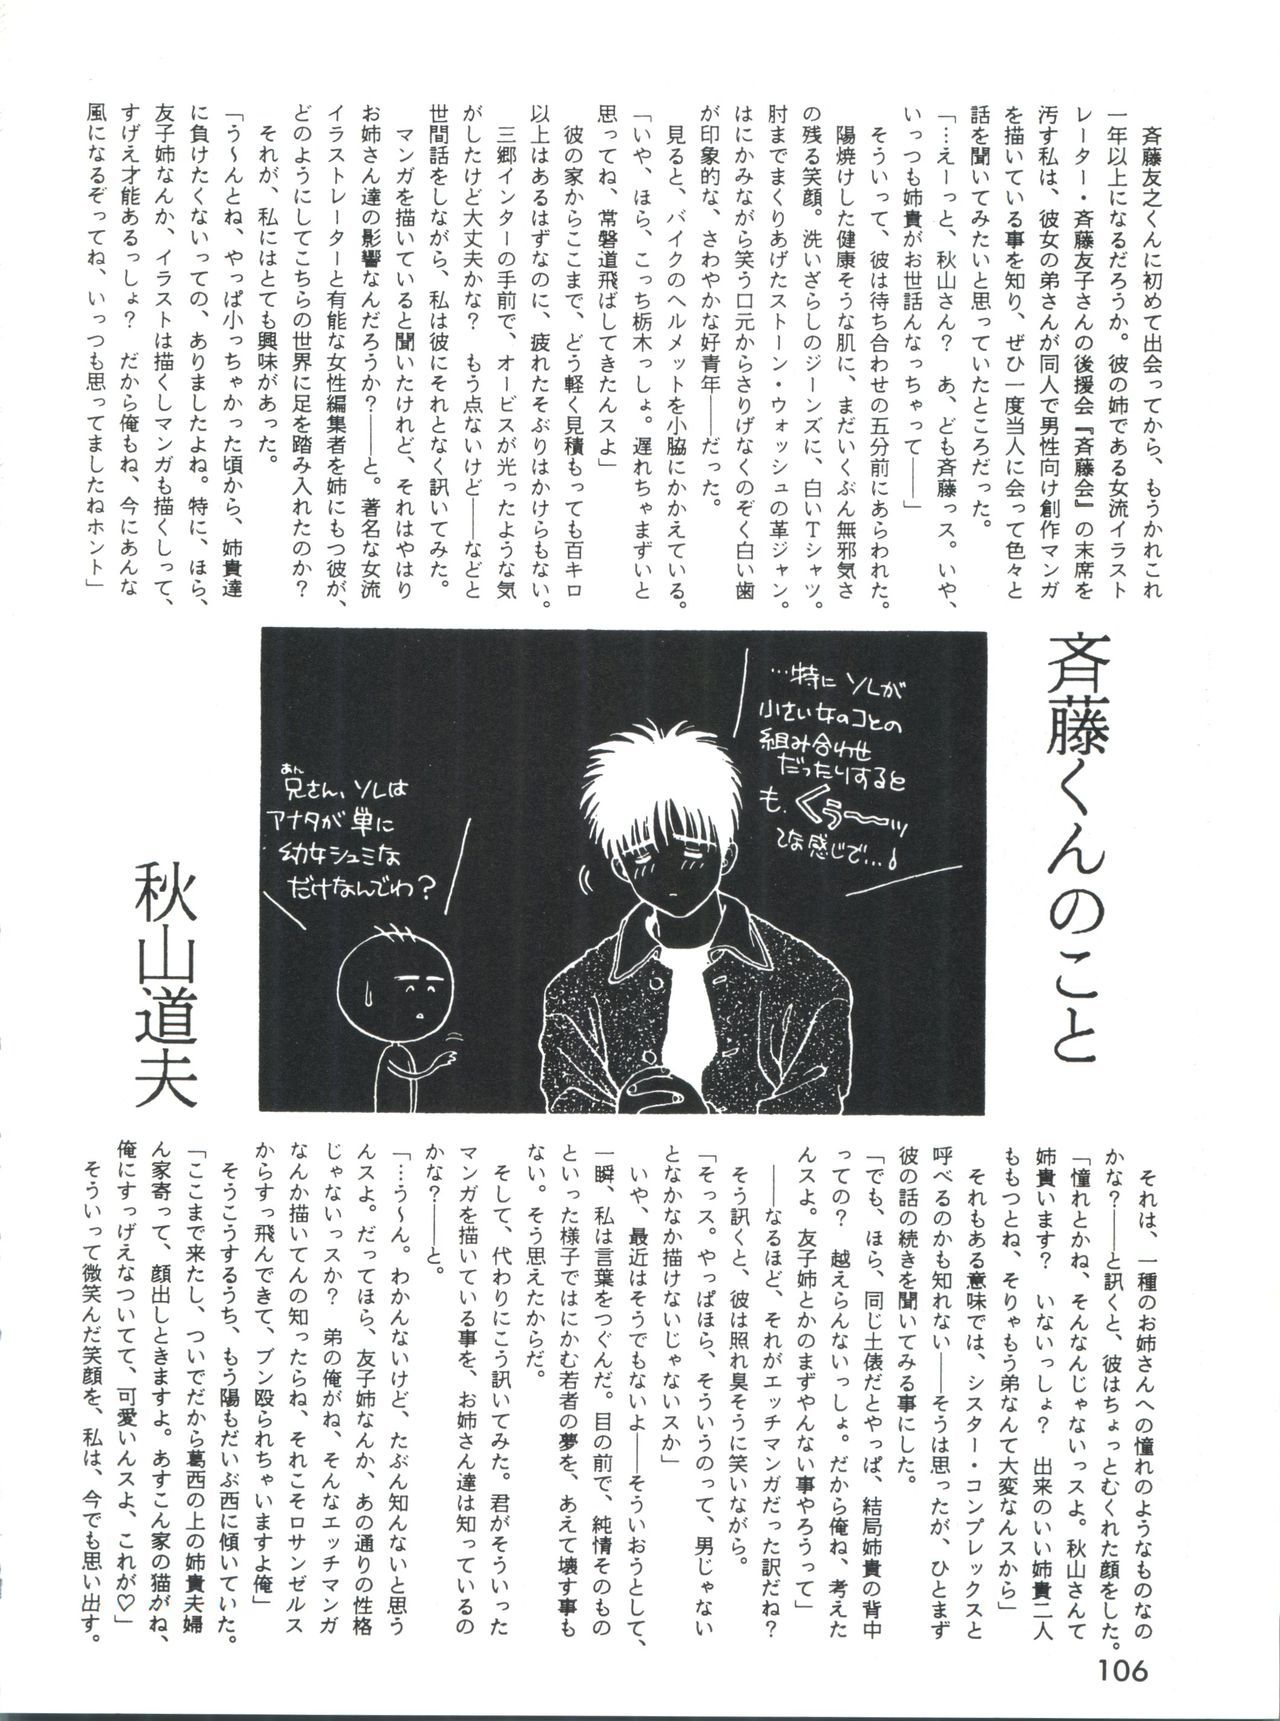 斉藤くんのこと
秋山道夫
斉藤友之くんに初めて出会ってから、もうかれこれ
一年以上になるだろうか。彼の姉である女流イラスト
レーター・斉藤友子さんの後援会『斉藤会』の末席を
汚す私は、彼女の弟さんが同人で男性向け創作マンガ
を描いている事を知り、ぜひ一度当人に会って色々と
話を聞いてみたいと思っていたところだった。
「…えーっと、秋山さん？　あ、ども斉藤っス。いや、
いっつも姉貴がお世話んなっちゃって――」
そういって、彼は待ち合わせの五分前にあらわれた。
陽焼けした健康そうな肌に、まだいくぶん無邪気さ
の残る笑顔。洗いざらしのジーンズに、白いＴシャツ。
肘までまくりあげたストーン・ウォッシュの革ジャン。
はにかみながら笑う口元からさりげなくのぞく白い歯
が印象的な、さわやかな好青年――だった。
見ると、バイクのヘルメットを小脇にかかえている。
「いや、ほら、こっち栃木っしょ。遅れちゃまずいと
思ってね、常磐道飛ばしてきたんスよ」
彼の家からここまで、どう軽く見積もっても百キロ
以上はあるはずなのに、疲れたそぶりはかけらもない。
三郷インターの手前で、オービスが光ったような気
がしたけど大丈夫かな？　もう点ないけど――などと
世間話をしながら、私は彼にそれとなく訊いてみた。
マンガを描いていると聞いたけれど、それはやはり
お姉さん達の影響なんだろうか？――と。著名な女流
イラストレーターと有能な女性編集者を姉にもつ彼が、
どのようにしてこちらの世界に足を踏み入れたのか？
それが、私にはとても興味があった。
「う～んとね、やっぱ小っちゃかった頃から、姉貴達
に負けたくないっての、ありましたよね。特に、ほら、
友子姉なんか、イラストは描くしマンガも描くしって、
すげえ才能あるっしょ？　だから俺もね、今にあんな
風になるぞってね、いっつも思ってましたねホント」
…特にソレが
小さい女のコとの
組み合わせ
だったりすると
も、くぅ～～ッ
てな感じで…！
あん
兄さん、ソレは
アナタが単に
幼女シュミな
だけなんでわ？
それは、一種のお姉さんへの憧れのようなものなの
かな？――と訊くと、彼はちょっとむくれた顔をした。
「憧れとかね、そんなんじゃないっスよ。秋山さんて
姉貴います？　いないっしょ？　出来のいい姉貴二人
ももつとね、そりゃもう弟なんて大変なんスから」
それもある意味では、シスター・コンプレックスと
呼べるのかも知れない――そうは思ったが、ひとまず
彼の話の続きを聞いてみる事にした。
「でも、ほら、同じ土俵だとやっぱ、結局姉貴の背中
っての？　越えらんないっしょ。だから俺ね、考えた
んスよ。友子姉とかのまずやんない事やろうって」
――なるほど、それがエッチマンガだった訳だね？
そう訊くと、彼は照れ臭そうに笑いながら。
「そっス。やっぱほら、そういうのって、男じゃない
となかなか描けないじゃないスか」
いや、最近はそうでもないよ――そういおうとして、
一瞬、私は言葉をつぐんだ。目の前で、純情そのもの
といった様子ではにかむ若者の夢を、あえて壊す事も
ない。そう思えたからだ。
そして、代わりにこう訊いてみた。君がそういった
マンガを描いている事を、お姉さん達は知っているの
かな？――と。
「…う～ん。わかんないけど、たぶん知んないと思う
んスよ。だってほら、友子姉なんか、あの通りの性格
じゃないっスか？　弟の俺がね、そんなエッチマンガ
なんか描いてんの知ったらね、それこそロサンゼルス
からすっ飛んできて、ブン殴られちゃいますよ俺」
そうこうするうち、もう陽もだいぶ西に傾いていた。
「ここまで来たし、ついでだから葛西の上の姉貴夫婦
ん家寄って、顔出しときますよ。あすこん家の猫がね、
俺にすっげえなついてて、可愛いんスよ、これが♡」
そういって微笑んだ笑顔を、私は、今でも思い出す。
106